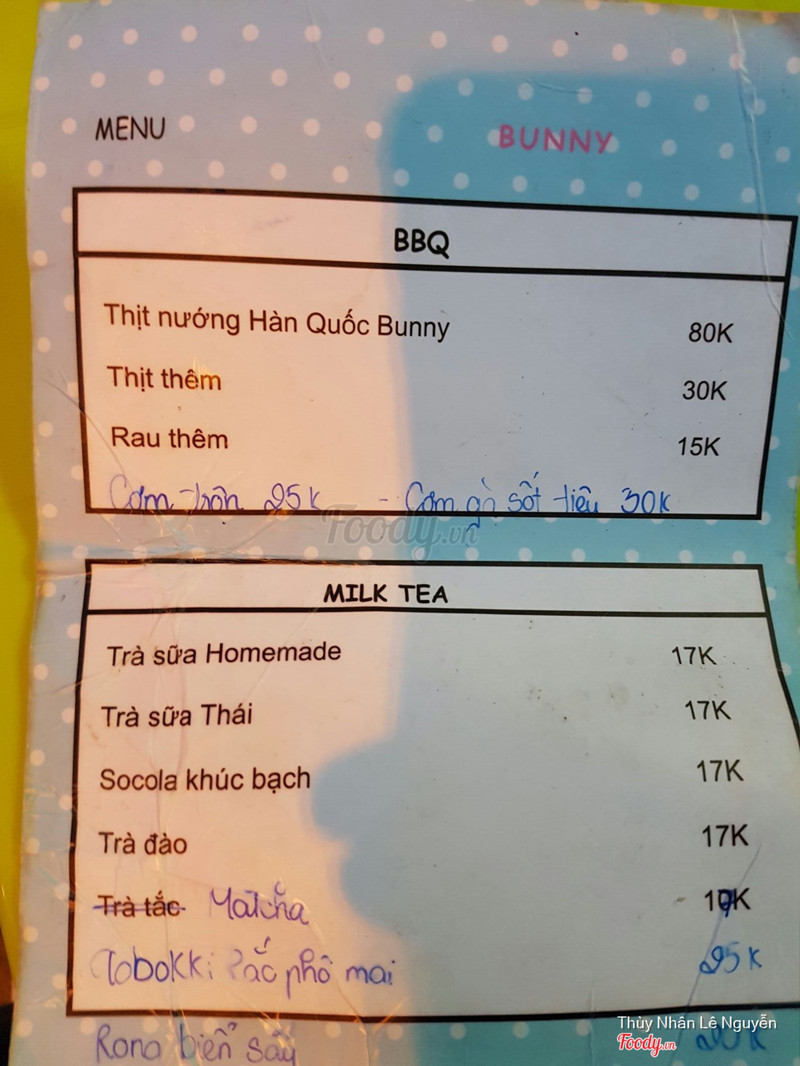 MENU BUNNY
BBQ
Thịt nướng Hàn Quốc Bunny 80K
Thịt thêm 30K
Rau thêm 15K
Cơm trộn 25K - Cơm gà sốt tiêu 30K
Foody.vn
MILK TEA
Trà sữa Homemade 17K
Trà sữa Thái 17K
Socola khúc bạch 17K
Trà đào 17K
Trà tắc Matcha 17K
Tobokki phô mai 25K
Rong biển sấy 20K
Thùy Nhân Lê Nguyễn
Foody.vn